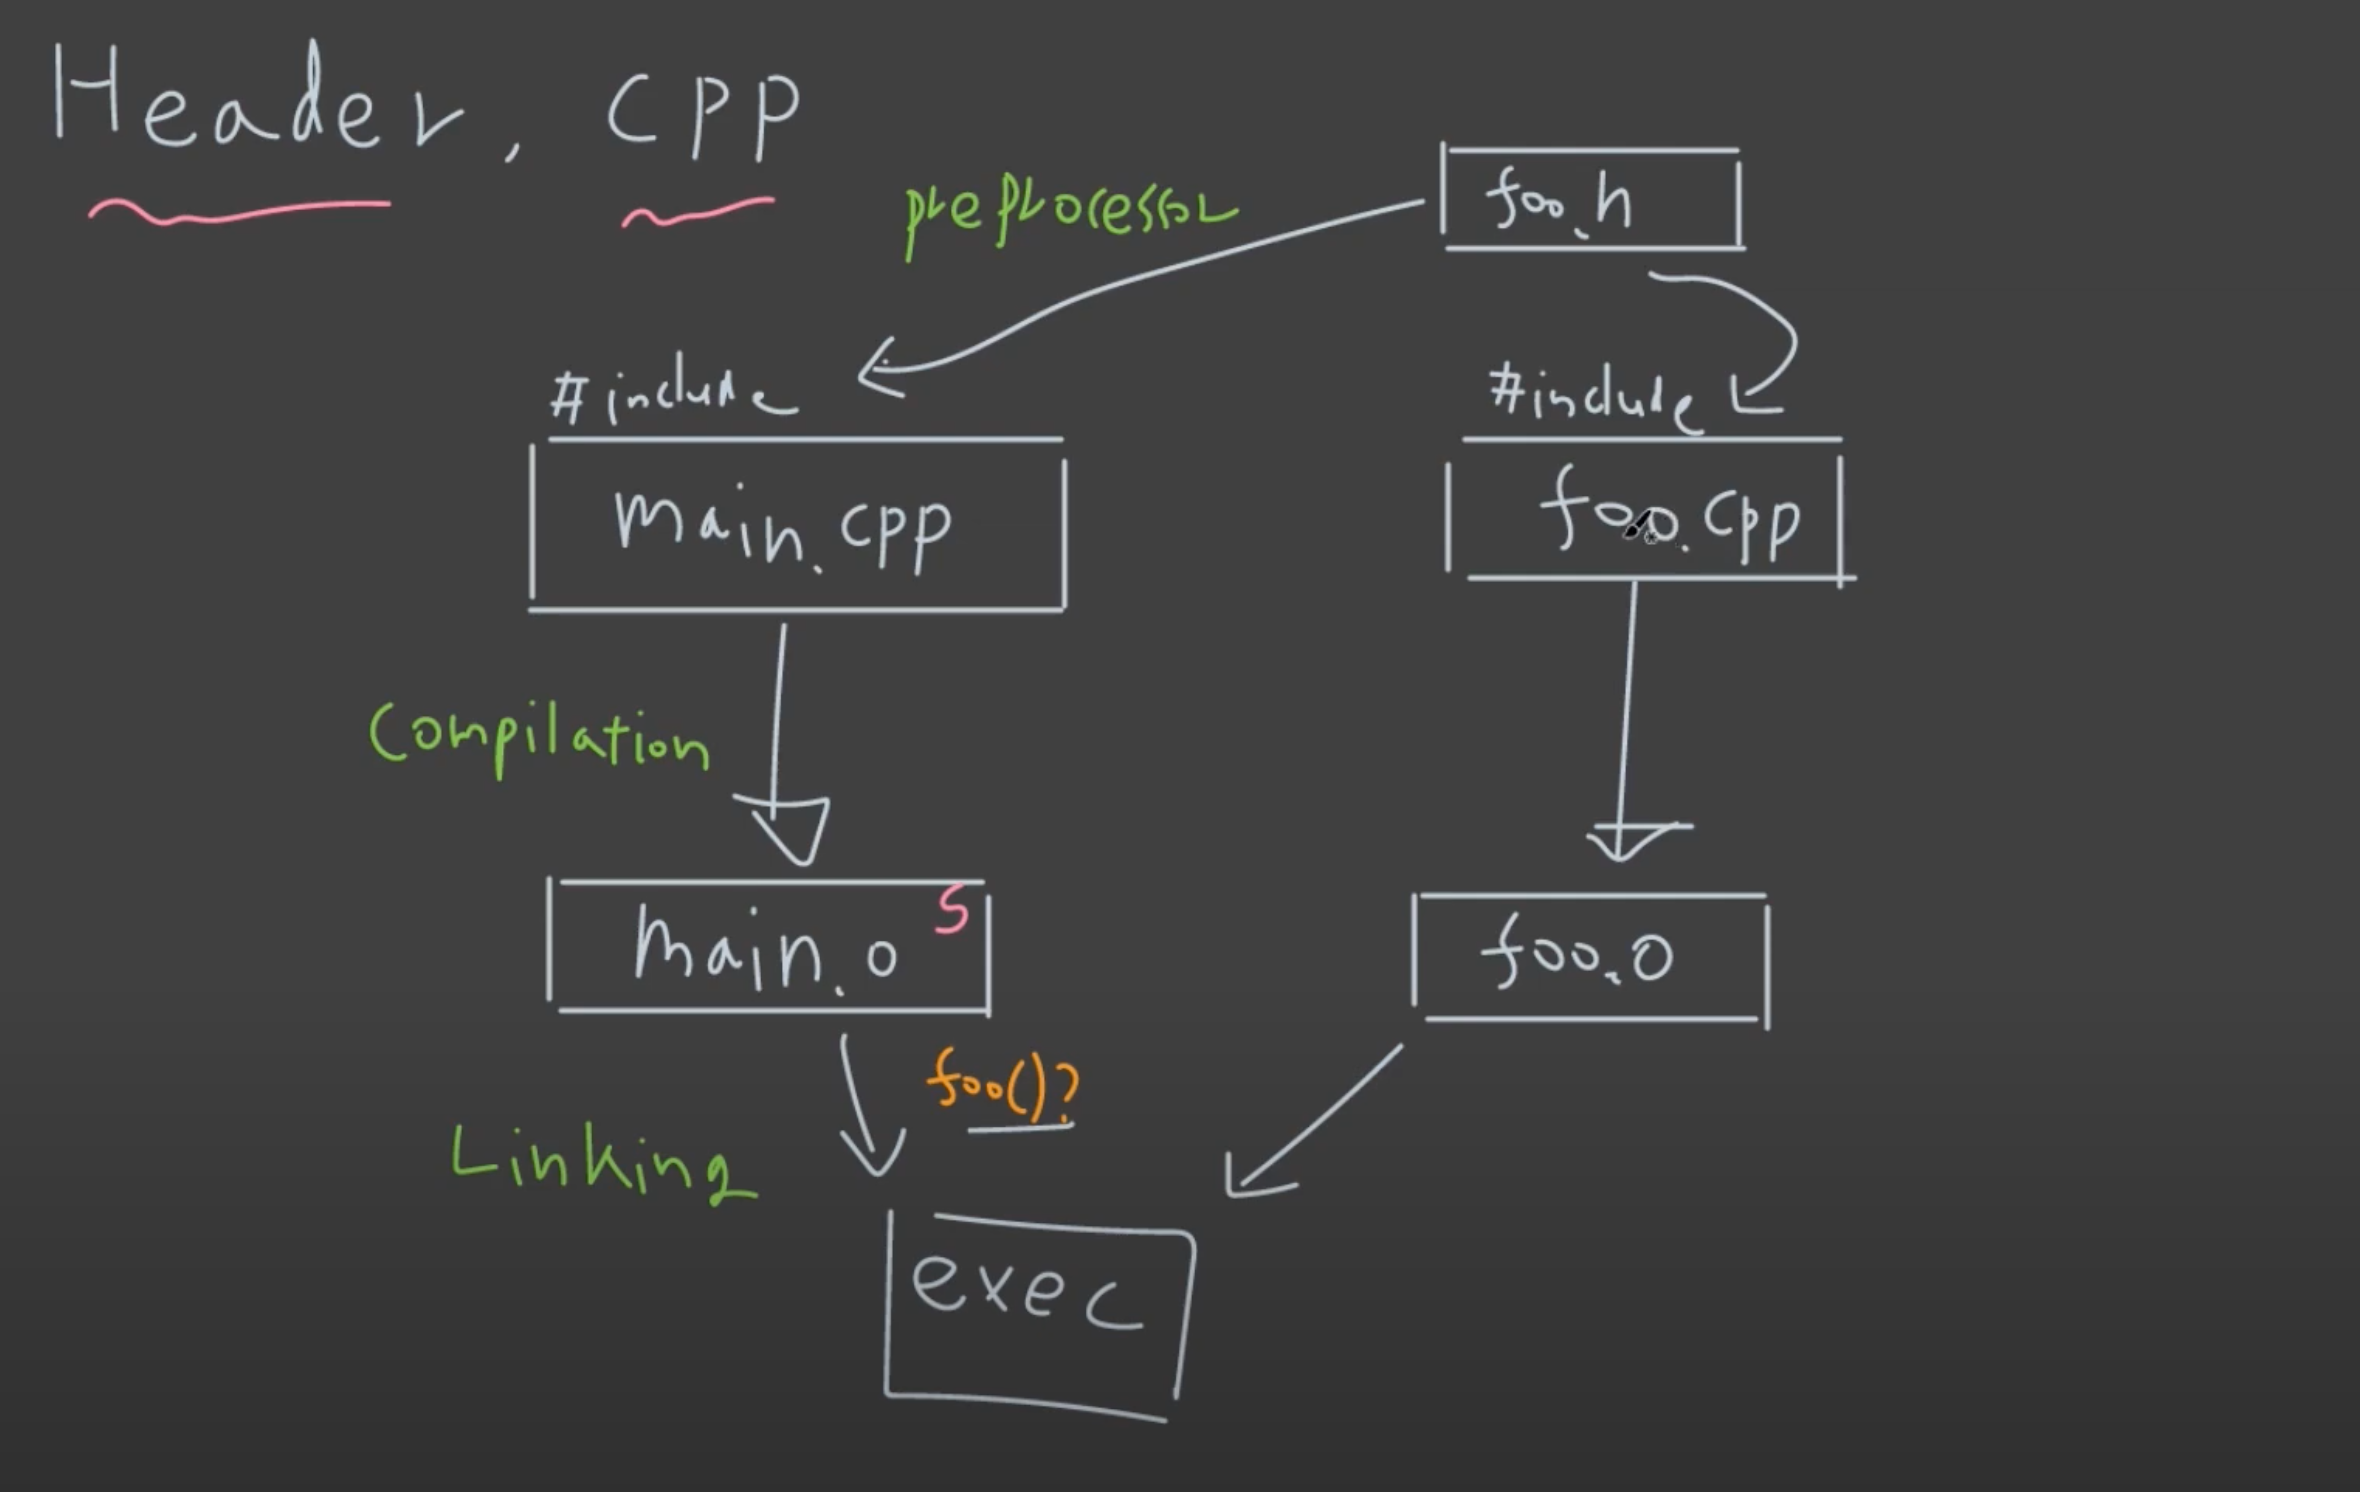 Header, cpp
preprocessor
foo.h
#include
#include
main.cpp
foo.cpp
Compilation
main.o
S
foo.o
foo()?
Linking
exec